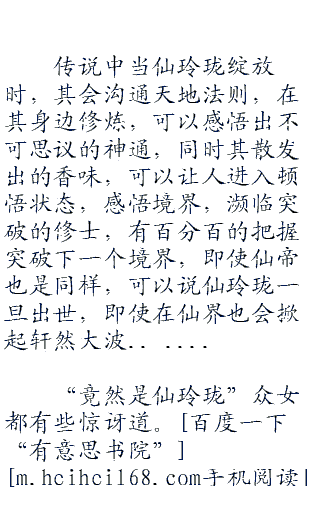 传说中当仙玲珑绽放
时，其会沟通天地法则，在
其身边修炼，可以感悟出不
可思议的神通，同时其散发
出的香味，可以让人进入顿
悟状态，感悟境界，濒临突
破的修士，有百分百的把握
突破下一个境界，即使仙帝
也是同样，可以说仙玲珑一
旦出世，即使在仙界也会掀
起轩然大波.. ....
“竟然是仙玲珑”众女
都有些惊讶道。[百度一下
“有意思书院”]
[m.hcihcil68.com手机阅读|